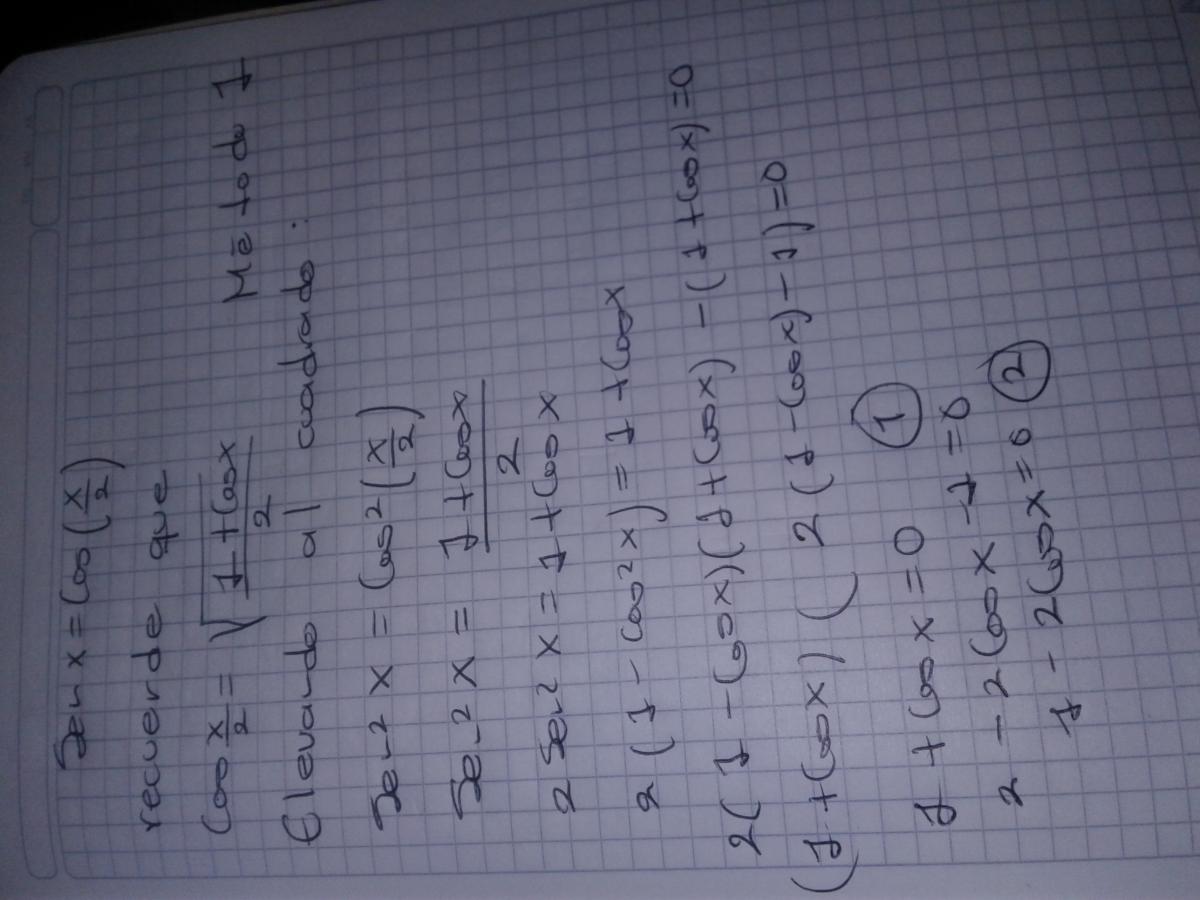 Sen x = Cos (x/2)
recuerde que
Cos x/2 = √(1 + Cos x / 2) Método 1
Elevando al cuadrado:
Sen² x = Cos² (x/2)
Sen² x = (1 + Cos x) / 2
2 Sen² x = 1 + Cos x
2 (1 - Cos² x) = 1 + Cos x
2(1 - Cos x)(1 + Cos x) - (1 + Cos x) = 0
(1 + Cos x) ( 2(1 - Cos x) - 1) = 0
1 + Cos x = 0 ①
2 - 2 Cos x - 1 = 0
1 - 2 Cos x = 0 ②